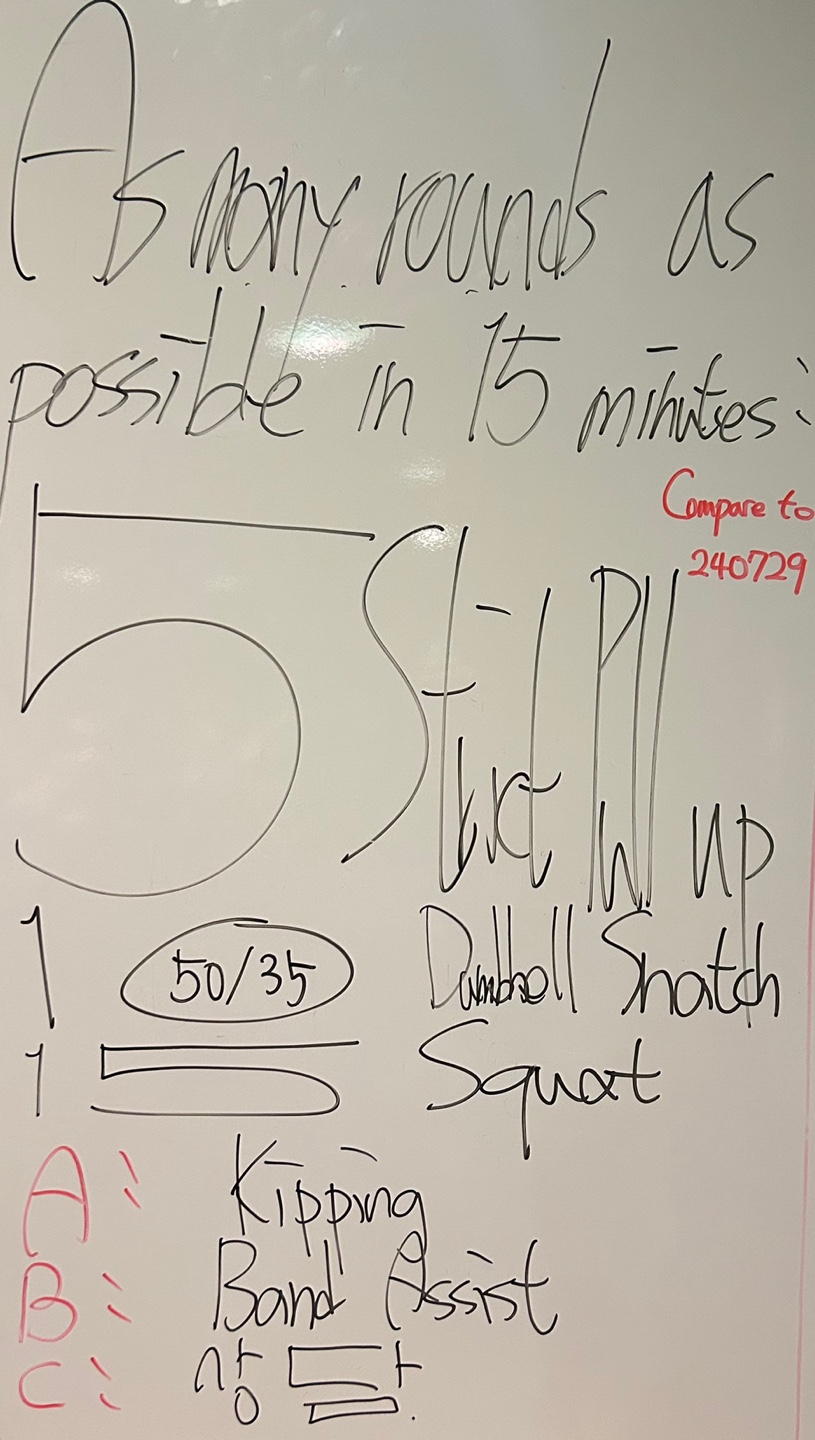 As many rounds as
possible in 15 minutes:
Compare to
240729
5 Strict Pull up
10 50/35 Dumbbell Snatch
15 Squat
A: Kipping
B: Band Assist
C: 상담.